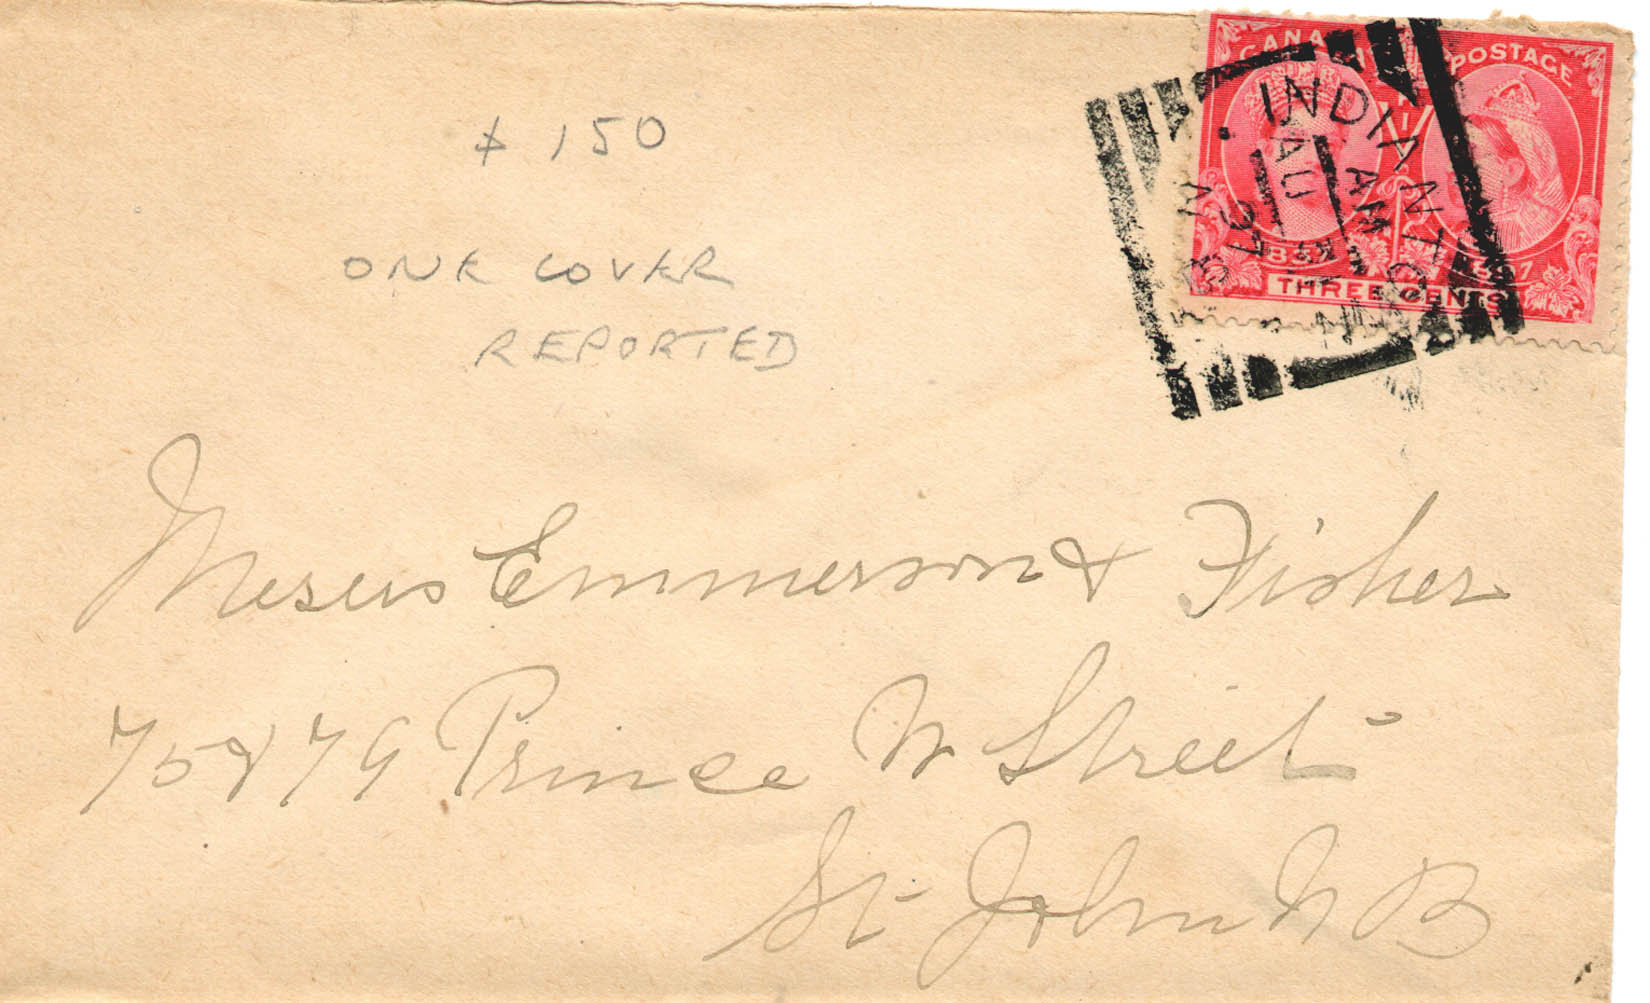 $ 150
ONE COVER
REPORTED
CANADA POSTAGE
INDIANTOWN
AM
AU
97
N B
THREE CENTS
Messrs Emmerson & Fisher
75 & 79 Prince Wm Street
St. John N B